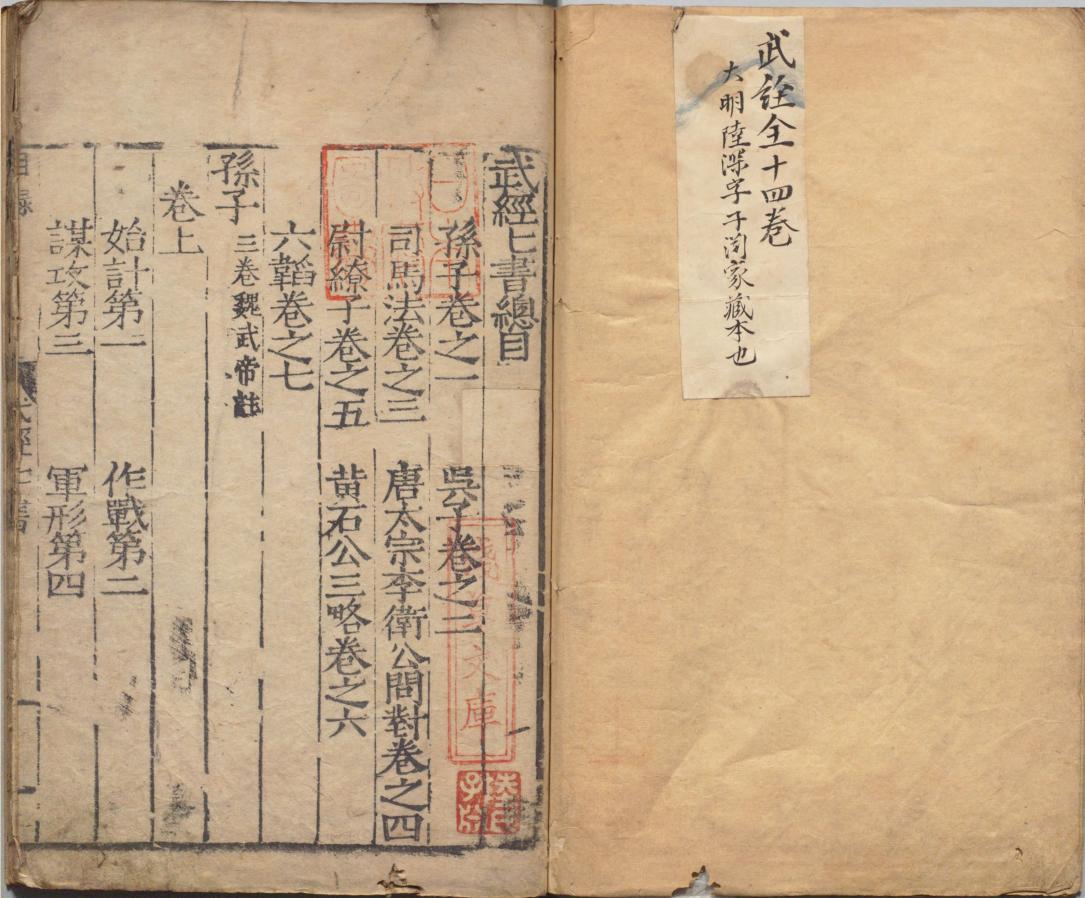 武詮全十四卷
大明陸深字子渕家藏本也
武經七書總目
孫子卷之一 吳子卷之二
司馬法卷之三 唐太宗李衛公問對卷之四
尉繚子卷之五 黃石公三略卷之六
六韜卷之七
孫子 三卷魏武帝註
卷上
始計第一 作戰第二
謀攻第三 軍形第四
目錄 武經七書
文庫